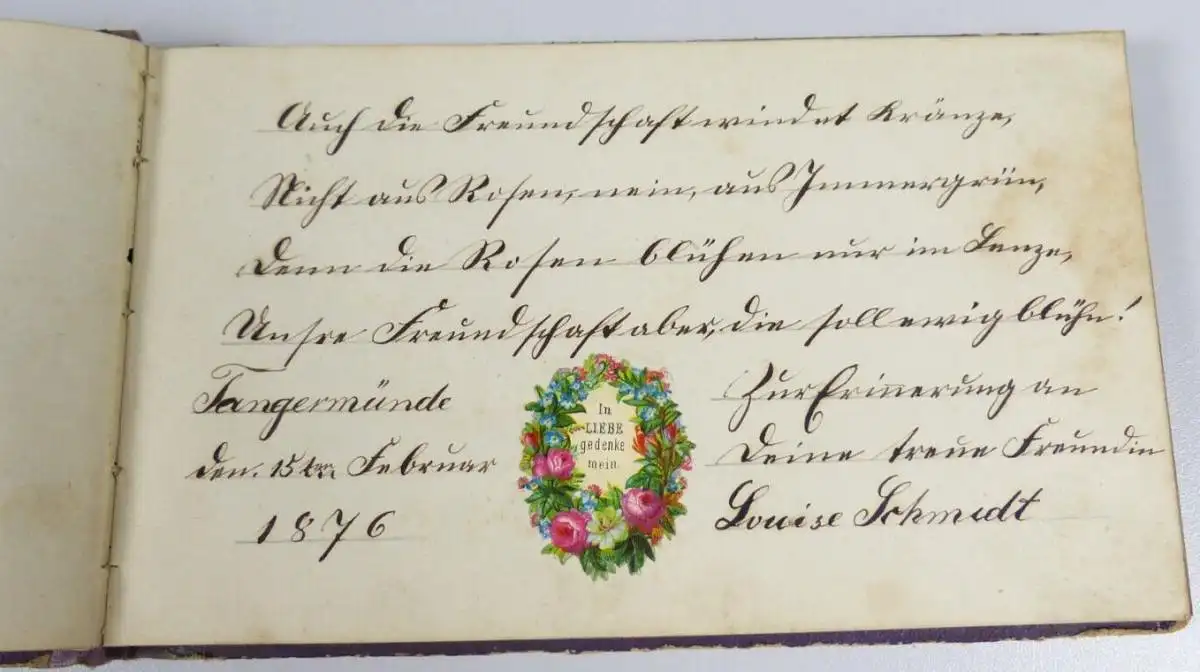 Auch die Freundschaft windet Kränze,
Nicht aus Rosen, nein, aus Immergrün,
Denn die Rosen blühen nur im Lenze,
Unsre Freundschaft aber, die soll ewig blühn!
Tangermünde
den. 15ten Februar
1876
In
LIEBE
gedenke
mein.
Zur Erinnerung an
Deine treue Freundin
Louise Schmidt